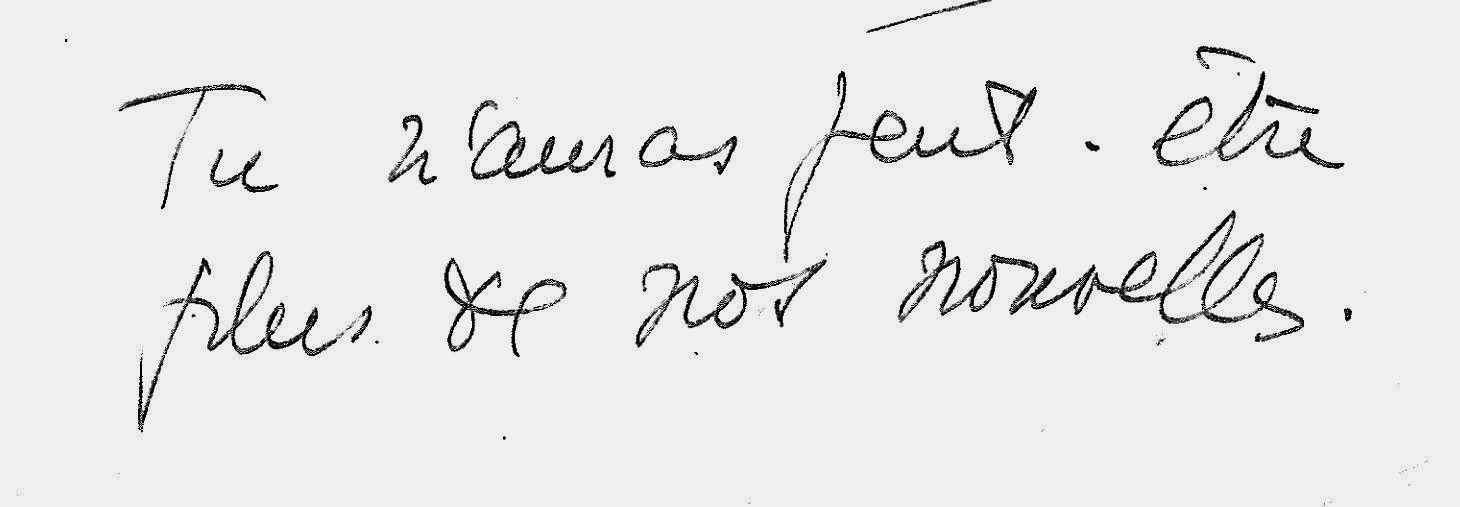 Tu n'auras peut-être
plus de nos nouvelles.